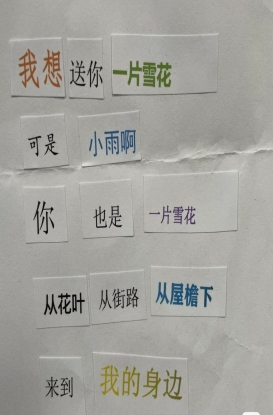 我想 送你 一片雪花
可是 小雨啊
你 也是 一片雪花
从花叶 从街路 从屋檐下
来到 我的身边